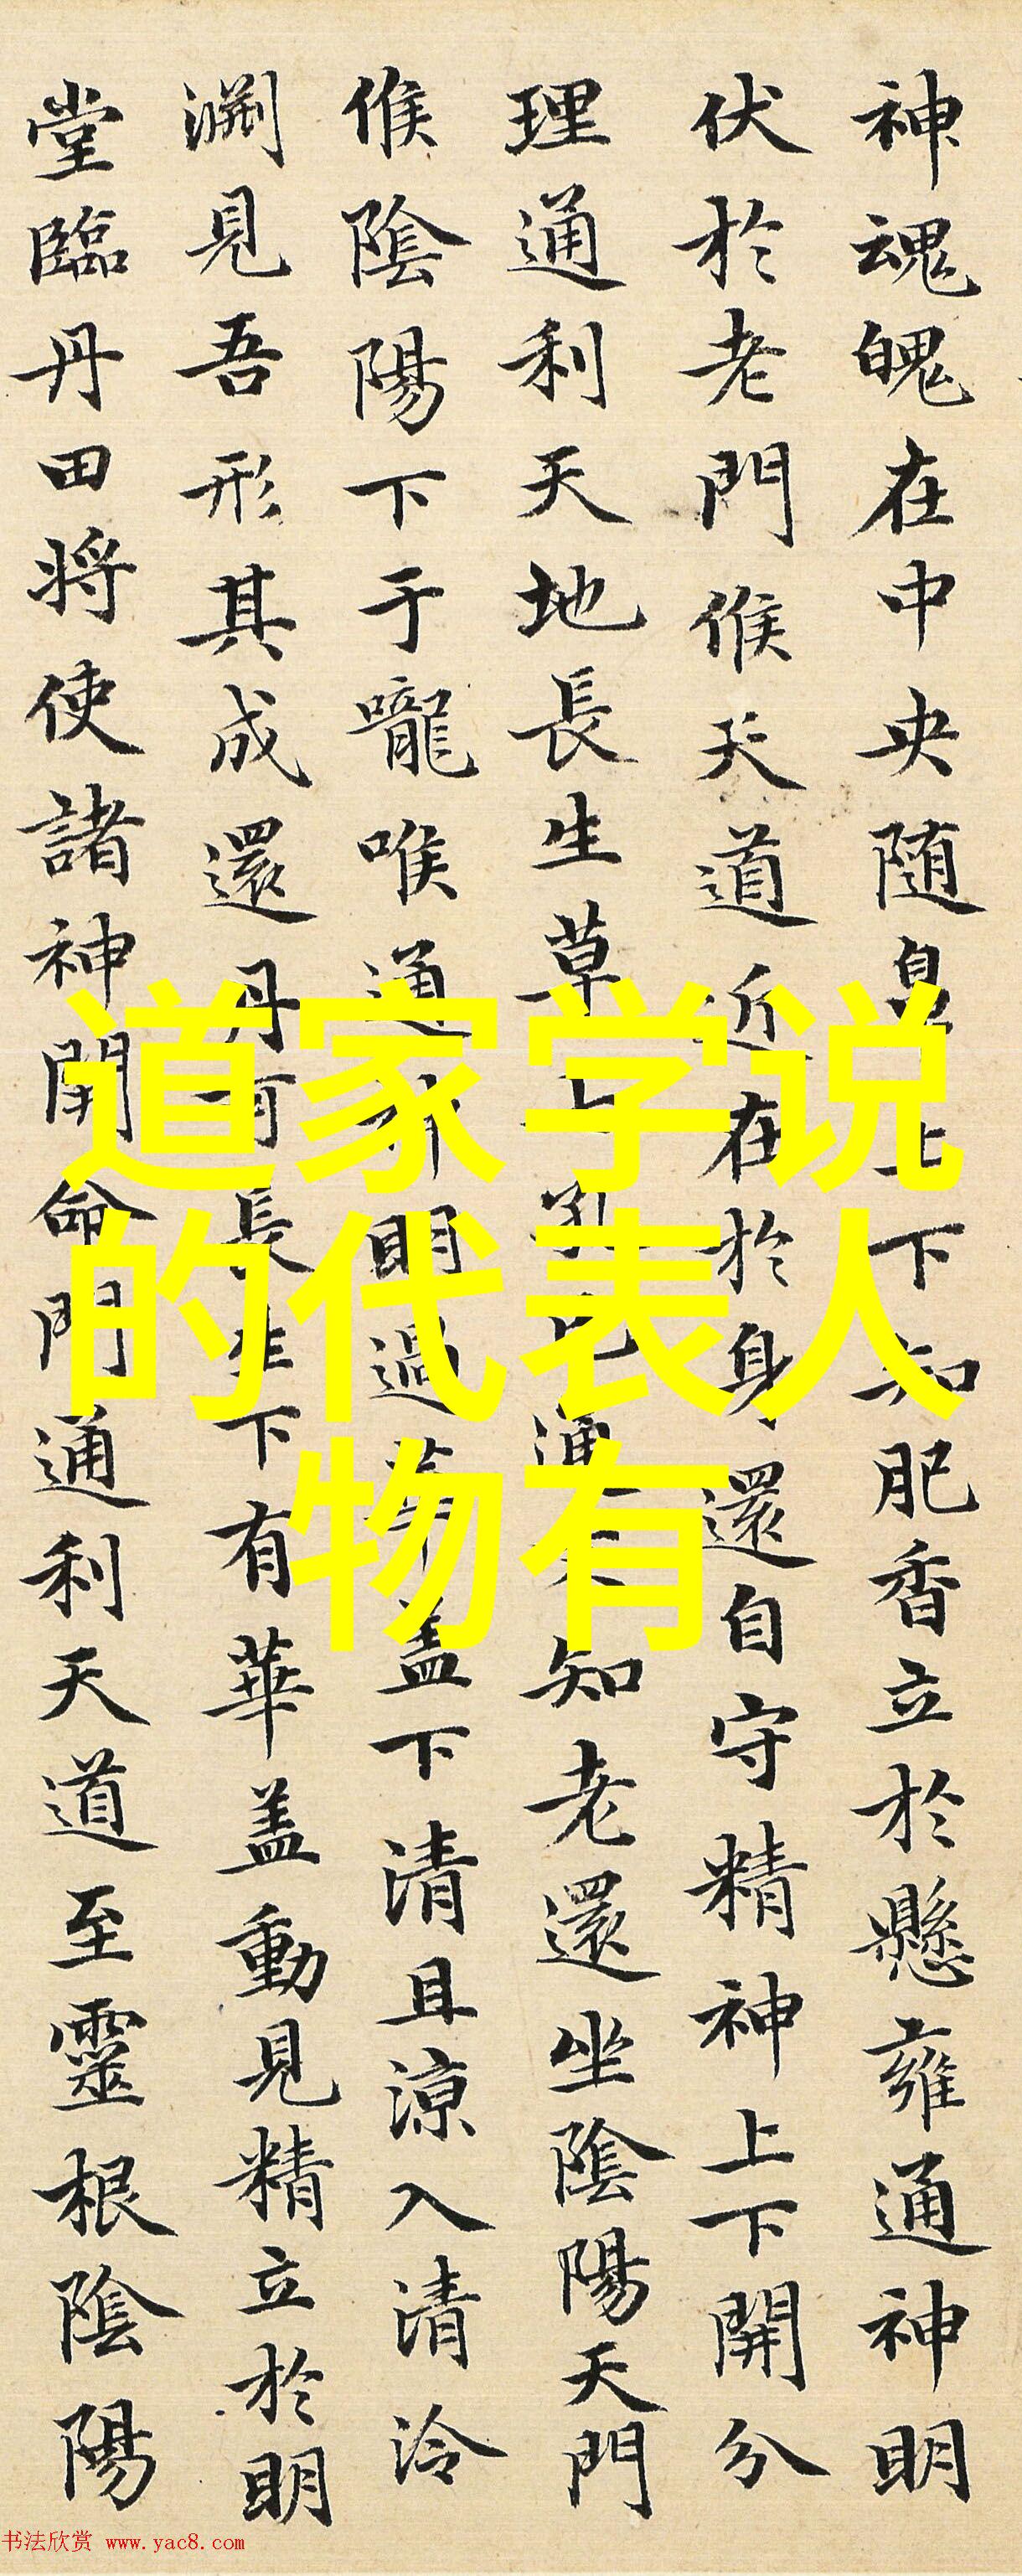 神魂魄在中央随鼻上下知肥香立於懸雍通神明
伏於老門候天道近在於身還自守精神上下開分
理通利天地長生草
知老還坐陰陽天門
候陰陽下于嚨喉通
明過華蓋下清且涼入清泠
淵見吾形其成還丹可長生下有華蓋動見精立於明
堂臨丹田将使諸神開命門通利天道至靈根陰陽
道家学说
的代表人
物有
书法欣赏 www.yac8.com